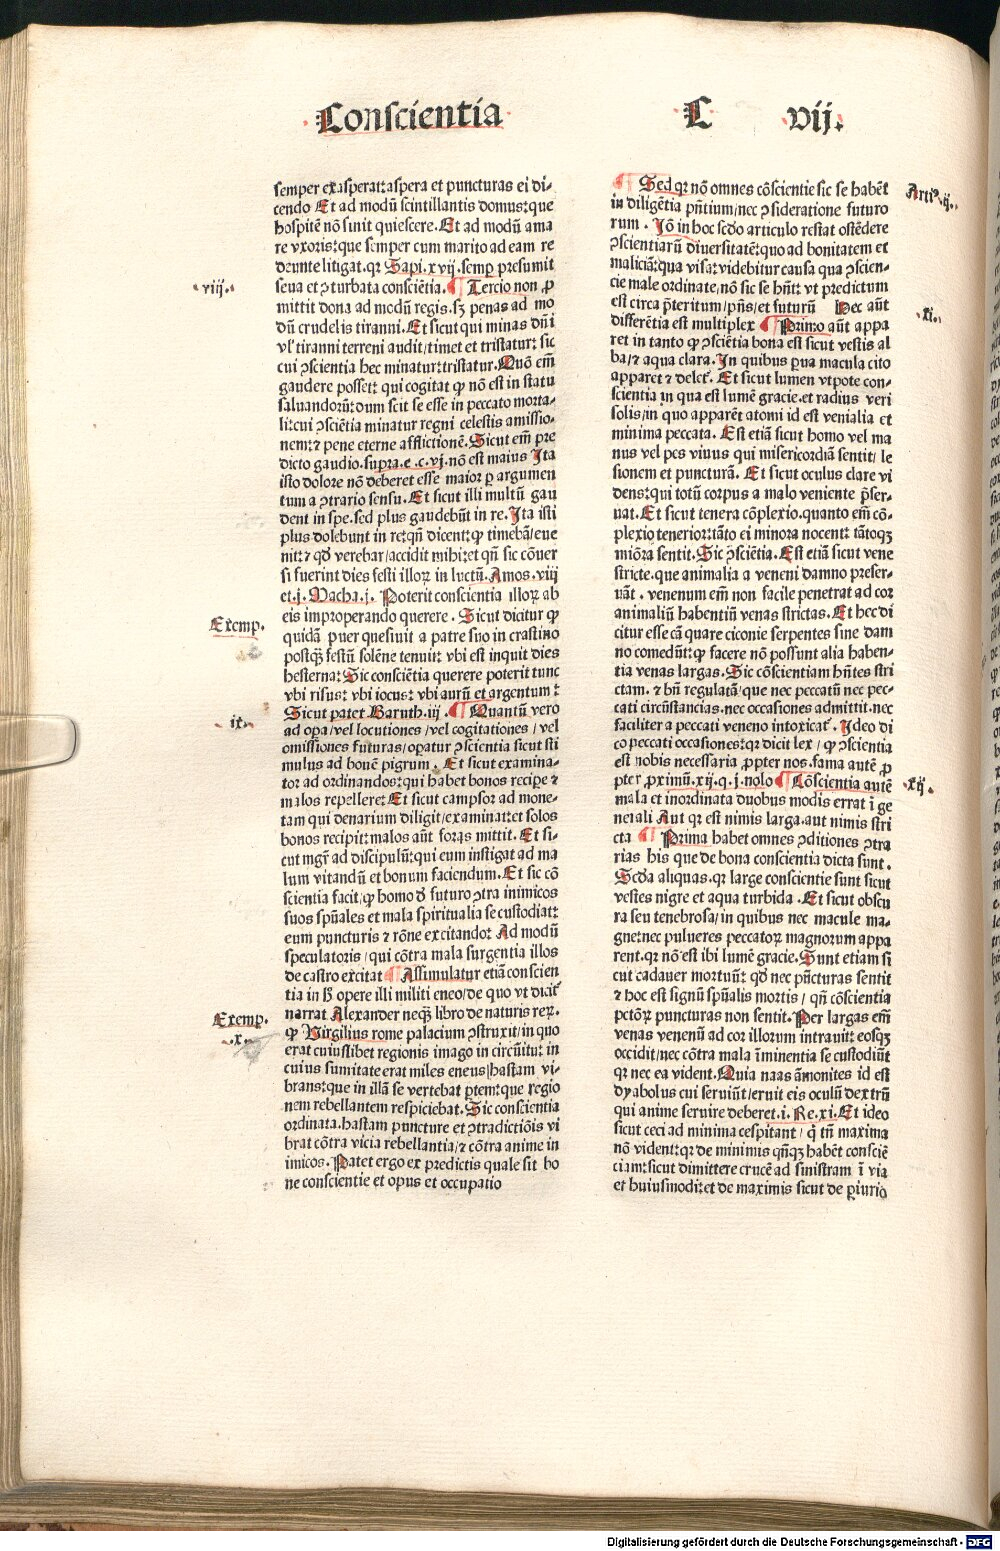 Conscientia
C vij.
semper exasperat: aspera et puncturas ei di-
cendo Et ad modū scintillantis domus: que
hospitē nō sinit quiescere. Et ad modū ama
re vxoris: que semper cum marito ad eam re
deunte litigat. qꝛ Sapi. xvij. semꝑ presumit
seua et ꝯturbata consciētia. ¶ Tercio non ꝓ
viij.
mittit dona ad modū regis. sꝫ penas ad mo
dū crudelis tiranni. Et sicut qui minas dn̄i
vl' tiranni terreni audit/ timet et tristatur: sic
cui ꝯscientia hec minatur: tristatur. Quō em̄
gaudere posset: qui cogitat ꝙ nō est in statu
saluandorū: dum scit se esse in peccato morta-
li: cui ꝯsciētia minatur regni celestis amissio-
nem: ⁊ pene eterne afflictionē. Sicut em̄ pre
dicto gaudio. supra. e. c. vj. nō est maius Ita
isto dolore nō deberet esse maior ꝑ argumen
tum a ꝯtrario sensu. Et sicut illi multū gau
dent in spe. sed plus gaudebūt in re. Ita isti
plus dolebunt in re: qn̄ dicent: ꝙ timebā/ eue
nit: ⁊ qd̄ verebar/ accidit mihi: et qn̄ sic cōuer
si fuerint dies festi illoꝝ in luctū. Amos. viij
et. j. Macha. j. Poterit conscientia illoꝝ ab
eis improperando querere. Sicut dicitur ꝙ
Exemp.
quidā puer quesiuit a patre suo in crastino
postqꝫ festū solēne tenuit: vbi est inquit dies
hesterna: Sic consciētia querere poterit tunc
vbi risus: vbi iocus: vbi aurū et argentum:
Sicut patet Baruth. iij. ¶ Quantū vero
ix.
ad oꝑa/ vel locutiones/ vel cogitationes/ vel
omissiones futuras/ oꝑatur ꝯscientia sicut sti
mulus ad bouē pigrum. Et sicut examina-
tor ad ordinandos: qui habet bonos recipe ⁊
malos repellere: Et sicut campsor ad mone-
tam qui denarium diligit/ examinat: et solos
bonos recipit: malos aūt foras mittit. Et si-
cut mgr̄ ad discipulū: qui eum instigat ad ma
lum vitandū et bonum faciendum. Et sic cō
scientia facit/ ꝙ homo d̄ futuro ꝯtra inimicos
suos spūales et mala spiritualia se custodiat:
eum puncturis ⁊ rōne excitando: Ad modū
speculatoris/ qui cōtra mala surgentia illos
de castro excitat ¶ Assimulatur etiā conscien
tia in h̄ opere illi militi eneo/ de quo vt dicit̄
narrat Alexander neqꝫ libro de naturis reꝝ.
Exemp.
ꝙ Virgilius rome palacium ꝯstruxit/ in quo
x.
erat cuiuslibet regionis imago in circūitu: in
cuius sumitate erat miles eneus/ hastam vi-
brans: que in illā se vertebat ꝑtem: que regio
nem rebellantem respiciebat. Sic conscientia
ordinata. hastam puncture et ꝯtradictiōis vi
brat cōtra vicia rebellantia/ ⁊ cōtra anime in
imicos. Patet ergo ex predictis quale sit bo
ne conscientie et opus et occupatio
¶ Sed qꝛ nō omnes cōscientie sic se habēt
Arti⁹. ij.
in diligētia pn̄tium/ nec ꝯsideratione futuro
rum. Iō in hoc scd̄o articulo restat ostēdere
ꝯscientiarū diuersitatē: quo ad bonitatem et
maliciā: qua visa: videbitur causa qua ꝯscien-
cie male ordinate/ nō sic se hn̄t: vt predictum
est circa ꝑteritum/ pn̄s/ et futurū Hec aūt
xi.
differētia est multiplex ¶ Primo aūt appa
ret in tanto ꝙ ꝯsciētia bona est sicut vestis al
ba/ ⁊ aqua clara. In quibus ꝑua macula cito
apparet ⁊ delet̄. Et sicut lumen vtpote con-
scientia in qua est lumē gracie. et radius veri
solis/ in quo apparēt atomi id est venialia et
minima peccata. Est etiā sicut homo vel ma
nus vel pes viuus qui misericordiā sentit/ le
sionem et puncturā. Et sicut oculus clare vi
dens: qui totū corpus a malo veniente p̄ser-
uat. Et sicut tenera cōplexio. quanto em̄ cō-
plexio tenerior: tāto ei minora nocent: tātoqꝫ
miōra sentit. Sic ꝯsciētia. Est etiā sicut vene
stricte. que animalia a veneni damno preser-
uāt. venenum em̄ non facile penetrat ad cor
animaliū habentiū venas strictas. Et hec di
citur esse cā quare ciconie serpentes sine dam
no comedūt: ꝙ facere nō possunt alia haben-
tia venas largas. Sic cōscientiam hn̄tes stri
ctam. ⁊ bn̄ regulatā/ que nec peccatū nec pec-
cati circūstancias. nec occasiones admittit. nec
faciliter a peccati veneno intoxicat̄. Ideo di
co peccati occasiones: qꝛ dicit lex/ ꝙ ꝯscientia
est nobis necessaria ꝓpter nos. fama autē ꝓ
pter ꝓximū. xij. q. j. nolo ¶ Cōscientia autē
xij.
mala et inordinata duobus modis errat ī ge
nerali Aut qꝛ est nimis larga. aut nimis stri
cta ¶ Prima habet omnes ꝯditiones ꝯtra
rias his que de bona conscientia dicta sunt.
Scd̄a aliquas. qꝛ large conscientie sunt sicut
vestes nigre et aqua turbida. Et sicut obscu
ra seu tenebrosa/ in quibus nec macule ma-
gne: nec pulueres peccatoꝝ magnorum appa
rent. qꝛ nō est ibi lumē gracie. Sunt etiam si
cut cadauer mortuū: qd̄ nec pūcturas sentit
⁊ hoc est signū spūalis mortis/ qn̄ cōscientia
pctōꝝ puncturas non sentit. Per largas em̄
venas venenū ad cor illorum intrauit: eosqꝫ
occidit/ nec cōtra mala īminentia se custodiūt
qꝛ nec ea vident. Quia naas āmonites id est
dyabolus cui seruiūt/ eruit eis oculū dextrū
qui anime seruire deberet. i. Re. xi. Et ideo
sicut ceci ad minima cespitant/ q̄ tn̄ maxima
nō vident: qꝛ de minimis qn̄qꝫ habēt consciē
ciam: sicut dimittere crucē ad sinistram ī via
et huiusmodi: et de maximis sicut de ꝑiurio
Digitalisierung gefördert durch die Deutsche Forschungsgemeinschaft - DFG